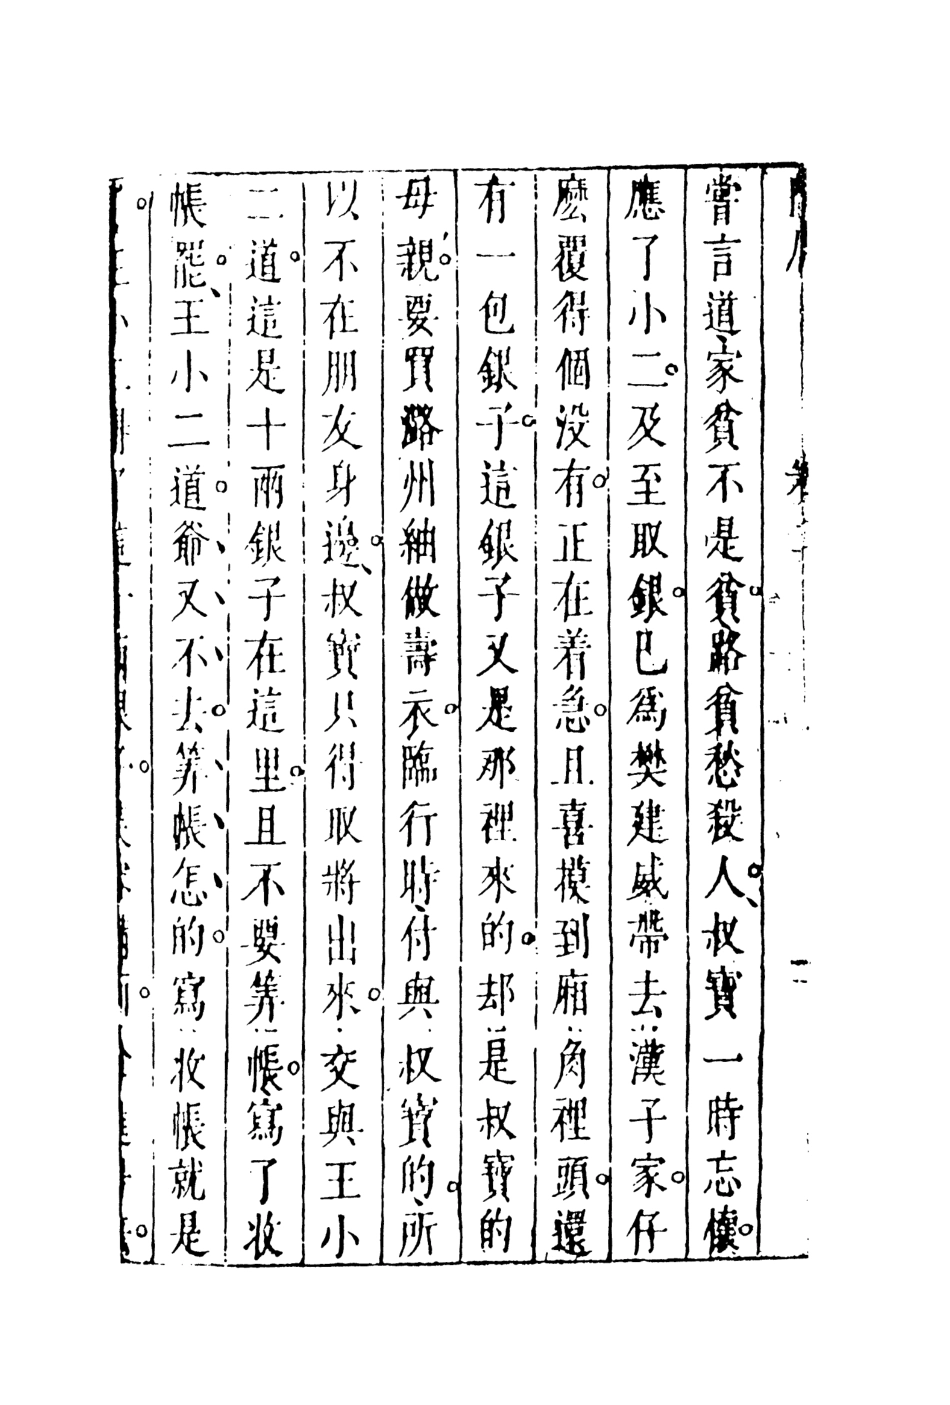 嘗言道家貧不是貧。路貧愁殺人。叔寶一時忘懷。
應了小二。及至取銀。已為樊建威帶去漢子家。仔
麼覆得個没有。正在着急。且喜摸到廂角裡頭。還
有一包銀子。這銀子又是那裡來的。却是叔寶的
母親。要買潞州紬做壽衣。臨行時、付與叔寶的、所
以不在朋友身邊。叔寶只得取將出來。交與王小
二道。這是十兩銀子在這里。且不要筭帳。寫了收
帳罷。王小二道。爺又不去。筭帳怎的。寫收帳就是